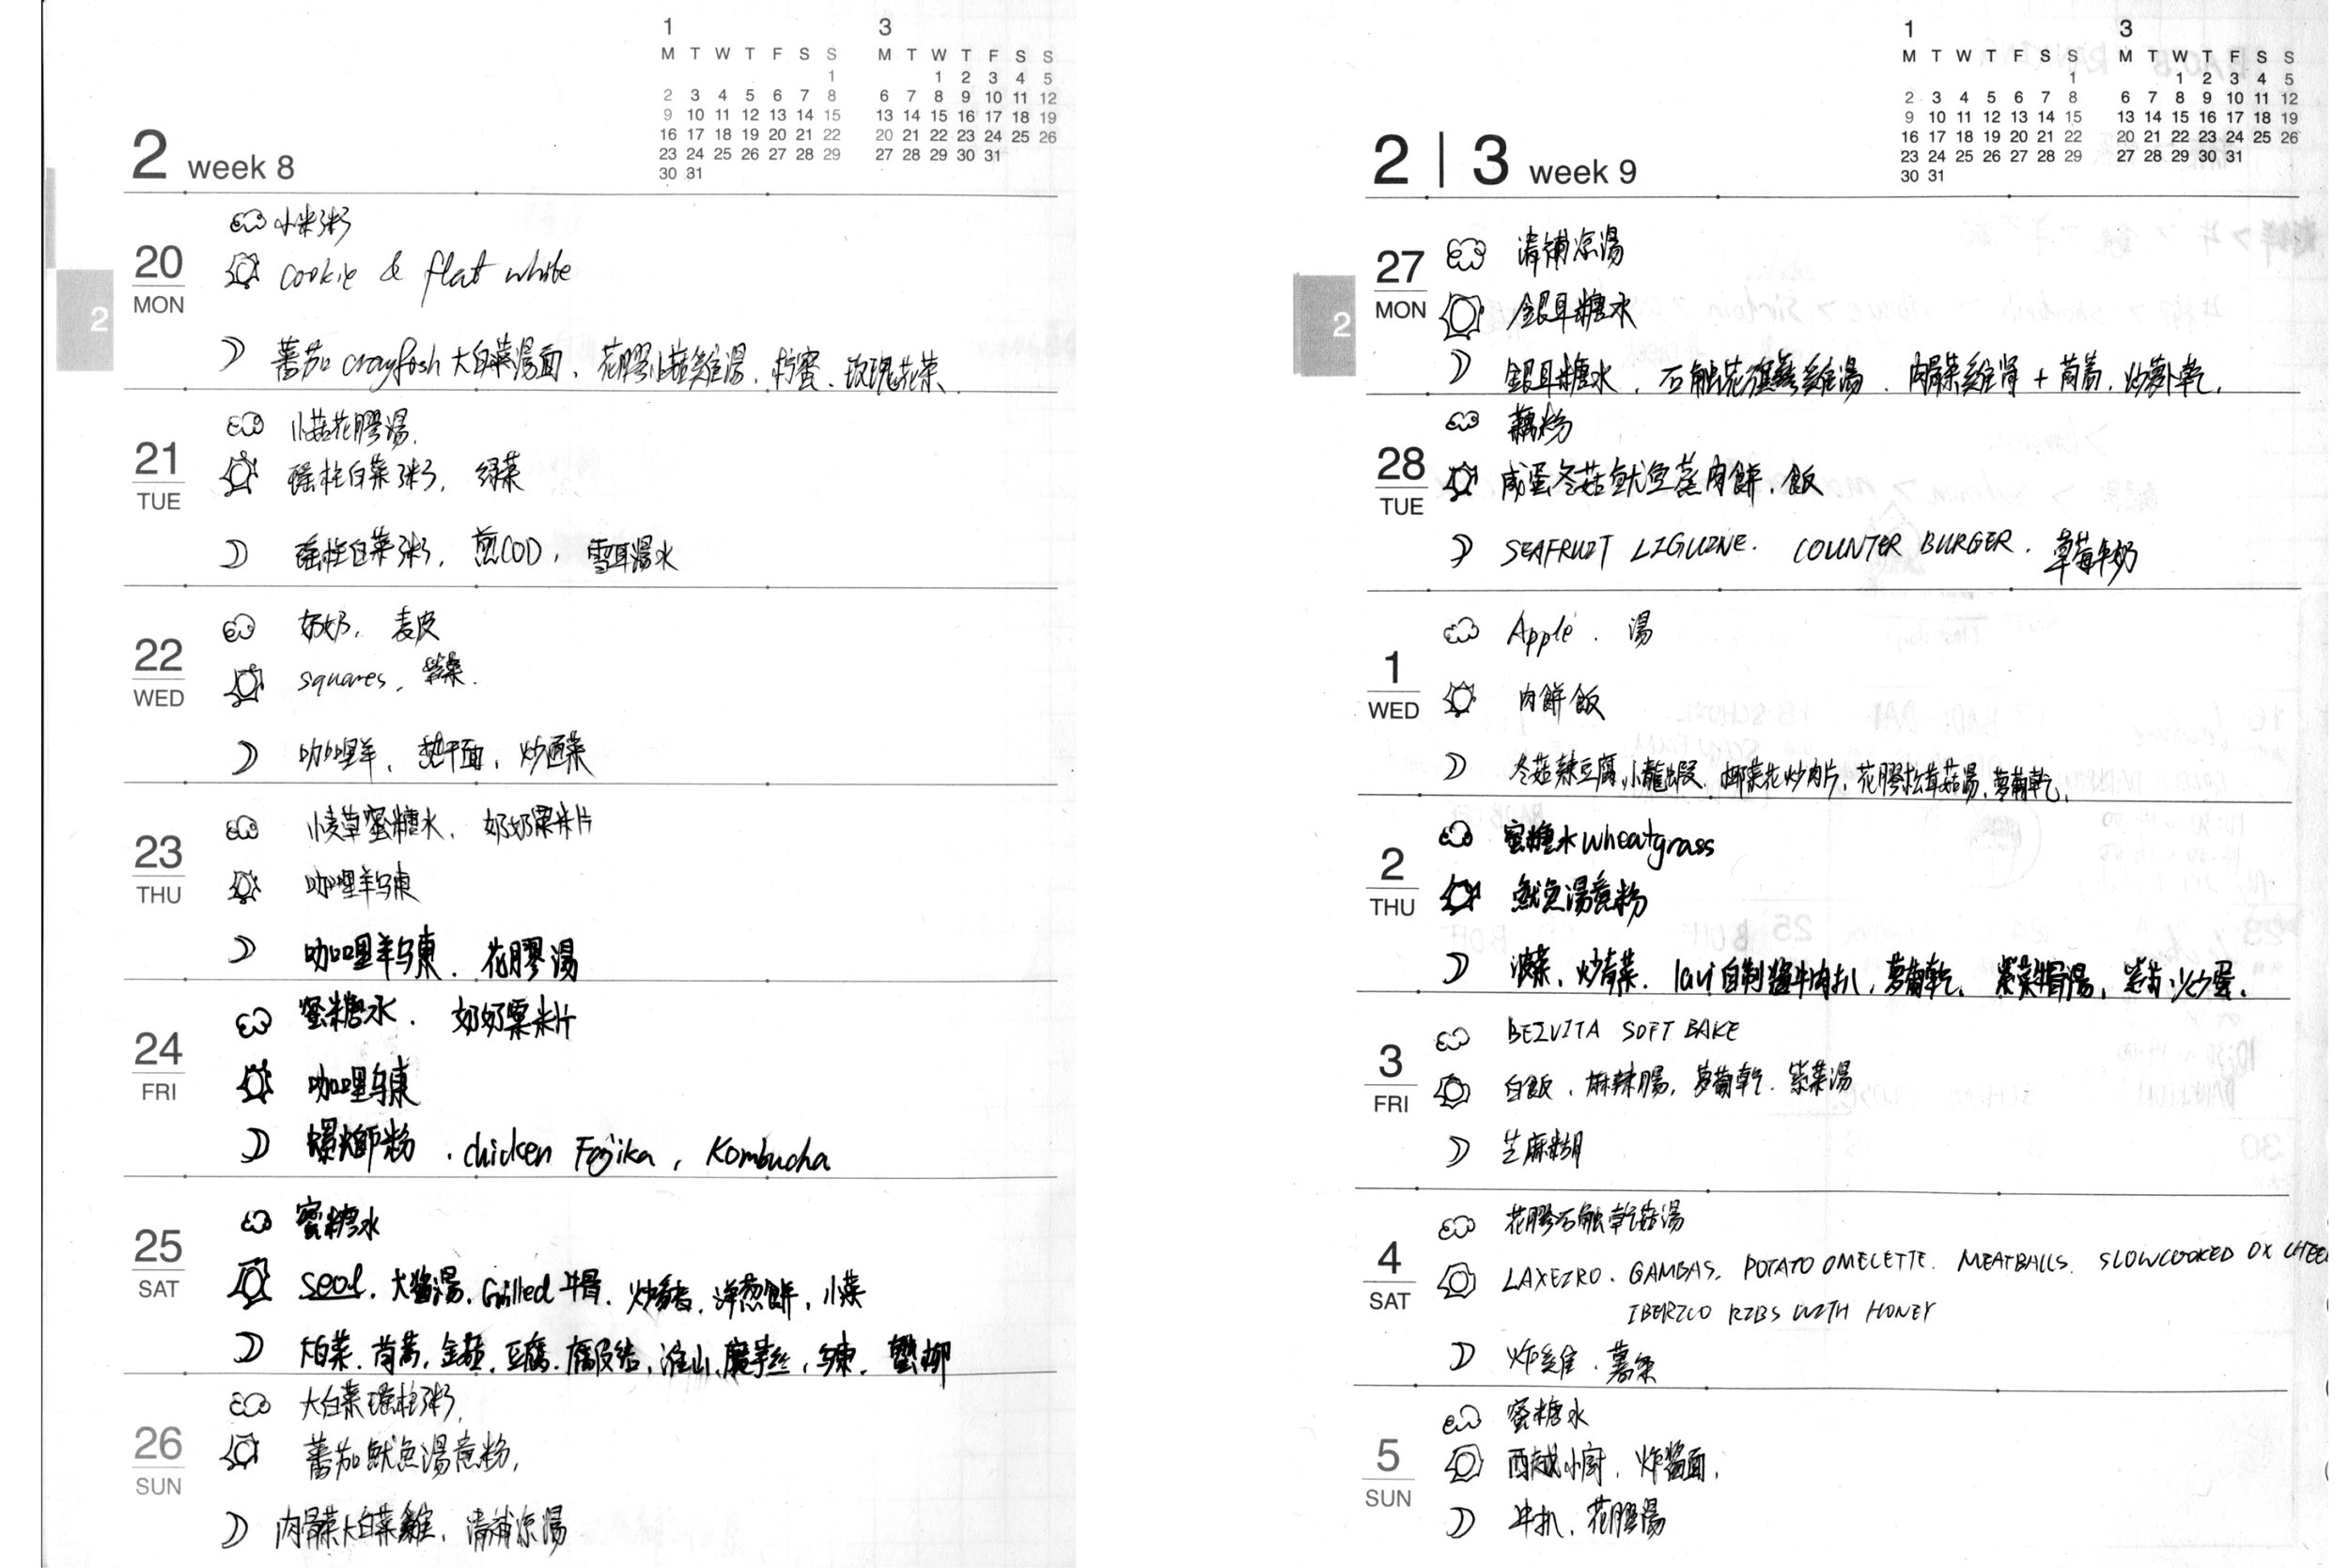 1 3
M T W T F S S M T W T F S S
1 1 2 3 4 5
2 3 4 5 6 7 8 6 7 8 9 10 11 12
9 10 11 12 13 14 15 13 14 15 16 17 18 19
16 17 18 19 20 21 22 20 21 22 23 24 25 26
23 24 25 26 27 28 29 27 28 29 30 31
30 31
2 week 8
2
20 MON
小米粥
cookie & flat white
蕃茄 crayfish 大白菜湯面、花膠小菇雞湯、柠蜜、玫瑰花菜
21 TUE
小菇花膠湯.
瑶柱白菜粥, 绿菜
瑶柱白菜粥, 煎COD, 雪耳湯水
22 WED
奶奶, 麦皮
squares, 紫菜.
咖哩羊, 热干面, 炒通菜
23 THU
小麦草蜜糖水, 奶奶粟米片
咖哩羊乌東
咖哩羊乌東. 花膠湯
24 FRI
蜜糖水. 奶奶粟米片
咖哩乌東
螺螄粉. chicken Fajika, Kombucha
25 SAT
蜜糖水
seol. 大醬湯. Grilled 牛骨. 洋葱餅, 小菜
大白菜. 茼蒿, 金菇. 豆腐. 腐皮结, 淮山, 魔芋丝, 乌東.
26 SUN
大白菜瑶柱粥,
蕃茄魷魚湯意粉,
肉骨茶大白菜雞, 清補凉湯
1 3
M T W T F S S M T W T F S S
1 1 2 3 4 5
2 3 4 5 6 7 8 6 7 8 9 10 11 12
9 10 11 12 13 14 15 13 14 15 16 17 18 19
16 17 18 19 20 21 22 20 21 22 23 24 25 26
23 24 25 26 27 28 29 27 28 29 30 31
30 31
2 | 3 week 9
2
27 MON
清補凉湯
銀耳糖水
銀耳糖水, 石斛花旗蔘雞湯. 肉骨茶雞腎 + 茼蒿, 炒萝卜乾,
28 TUE
藕粉
咸蛋冬菇魷魚蒸肉餅. 飯
SEAFRUIT LIGUINE. COUNTER BURGER. 草莓牛奶
1 WED
Apple. 湯
肉餅飯
冬菇辣豆腐, 小龍蝦, 椰菜花炒肉片, 花膠松茸菇湯, 萝蔔乾,
2 THU
蜜糖水 wheatgrass
魷魚湯意粉
炒青菜. 自制醬牛肉扒, 萝蔔乾, 紫菜骨湯, 炒蛋.
3 FRI
BEIVITA SOFT BAKE
白飯. 麻辣腸, 萝蔔乾. 紫菜湯
芝麻糊
4 SAT
花膠石斛乾菇湯
LAXEIRO. GAMBAS. POTATO OMELETTE. MEATBALLS. SLOWCOOKED OX CHEE
IBERICO RIBS WITH HONEY
炸雞. 薯条
5 SUN
蜜糖水
西越小厨. 炸醬面,
牛扒, 花膠湯